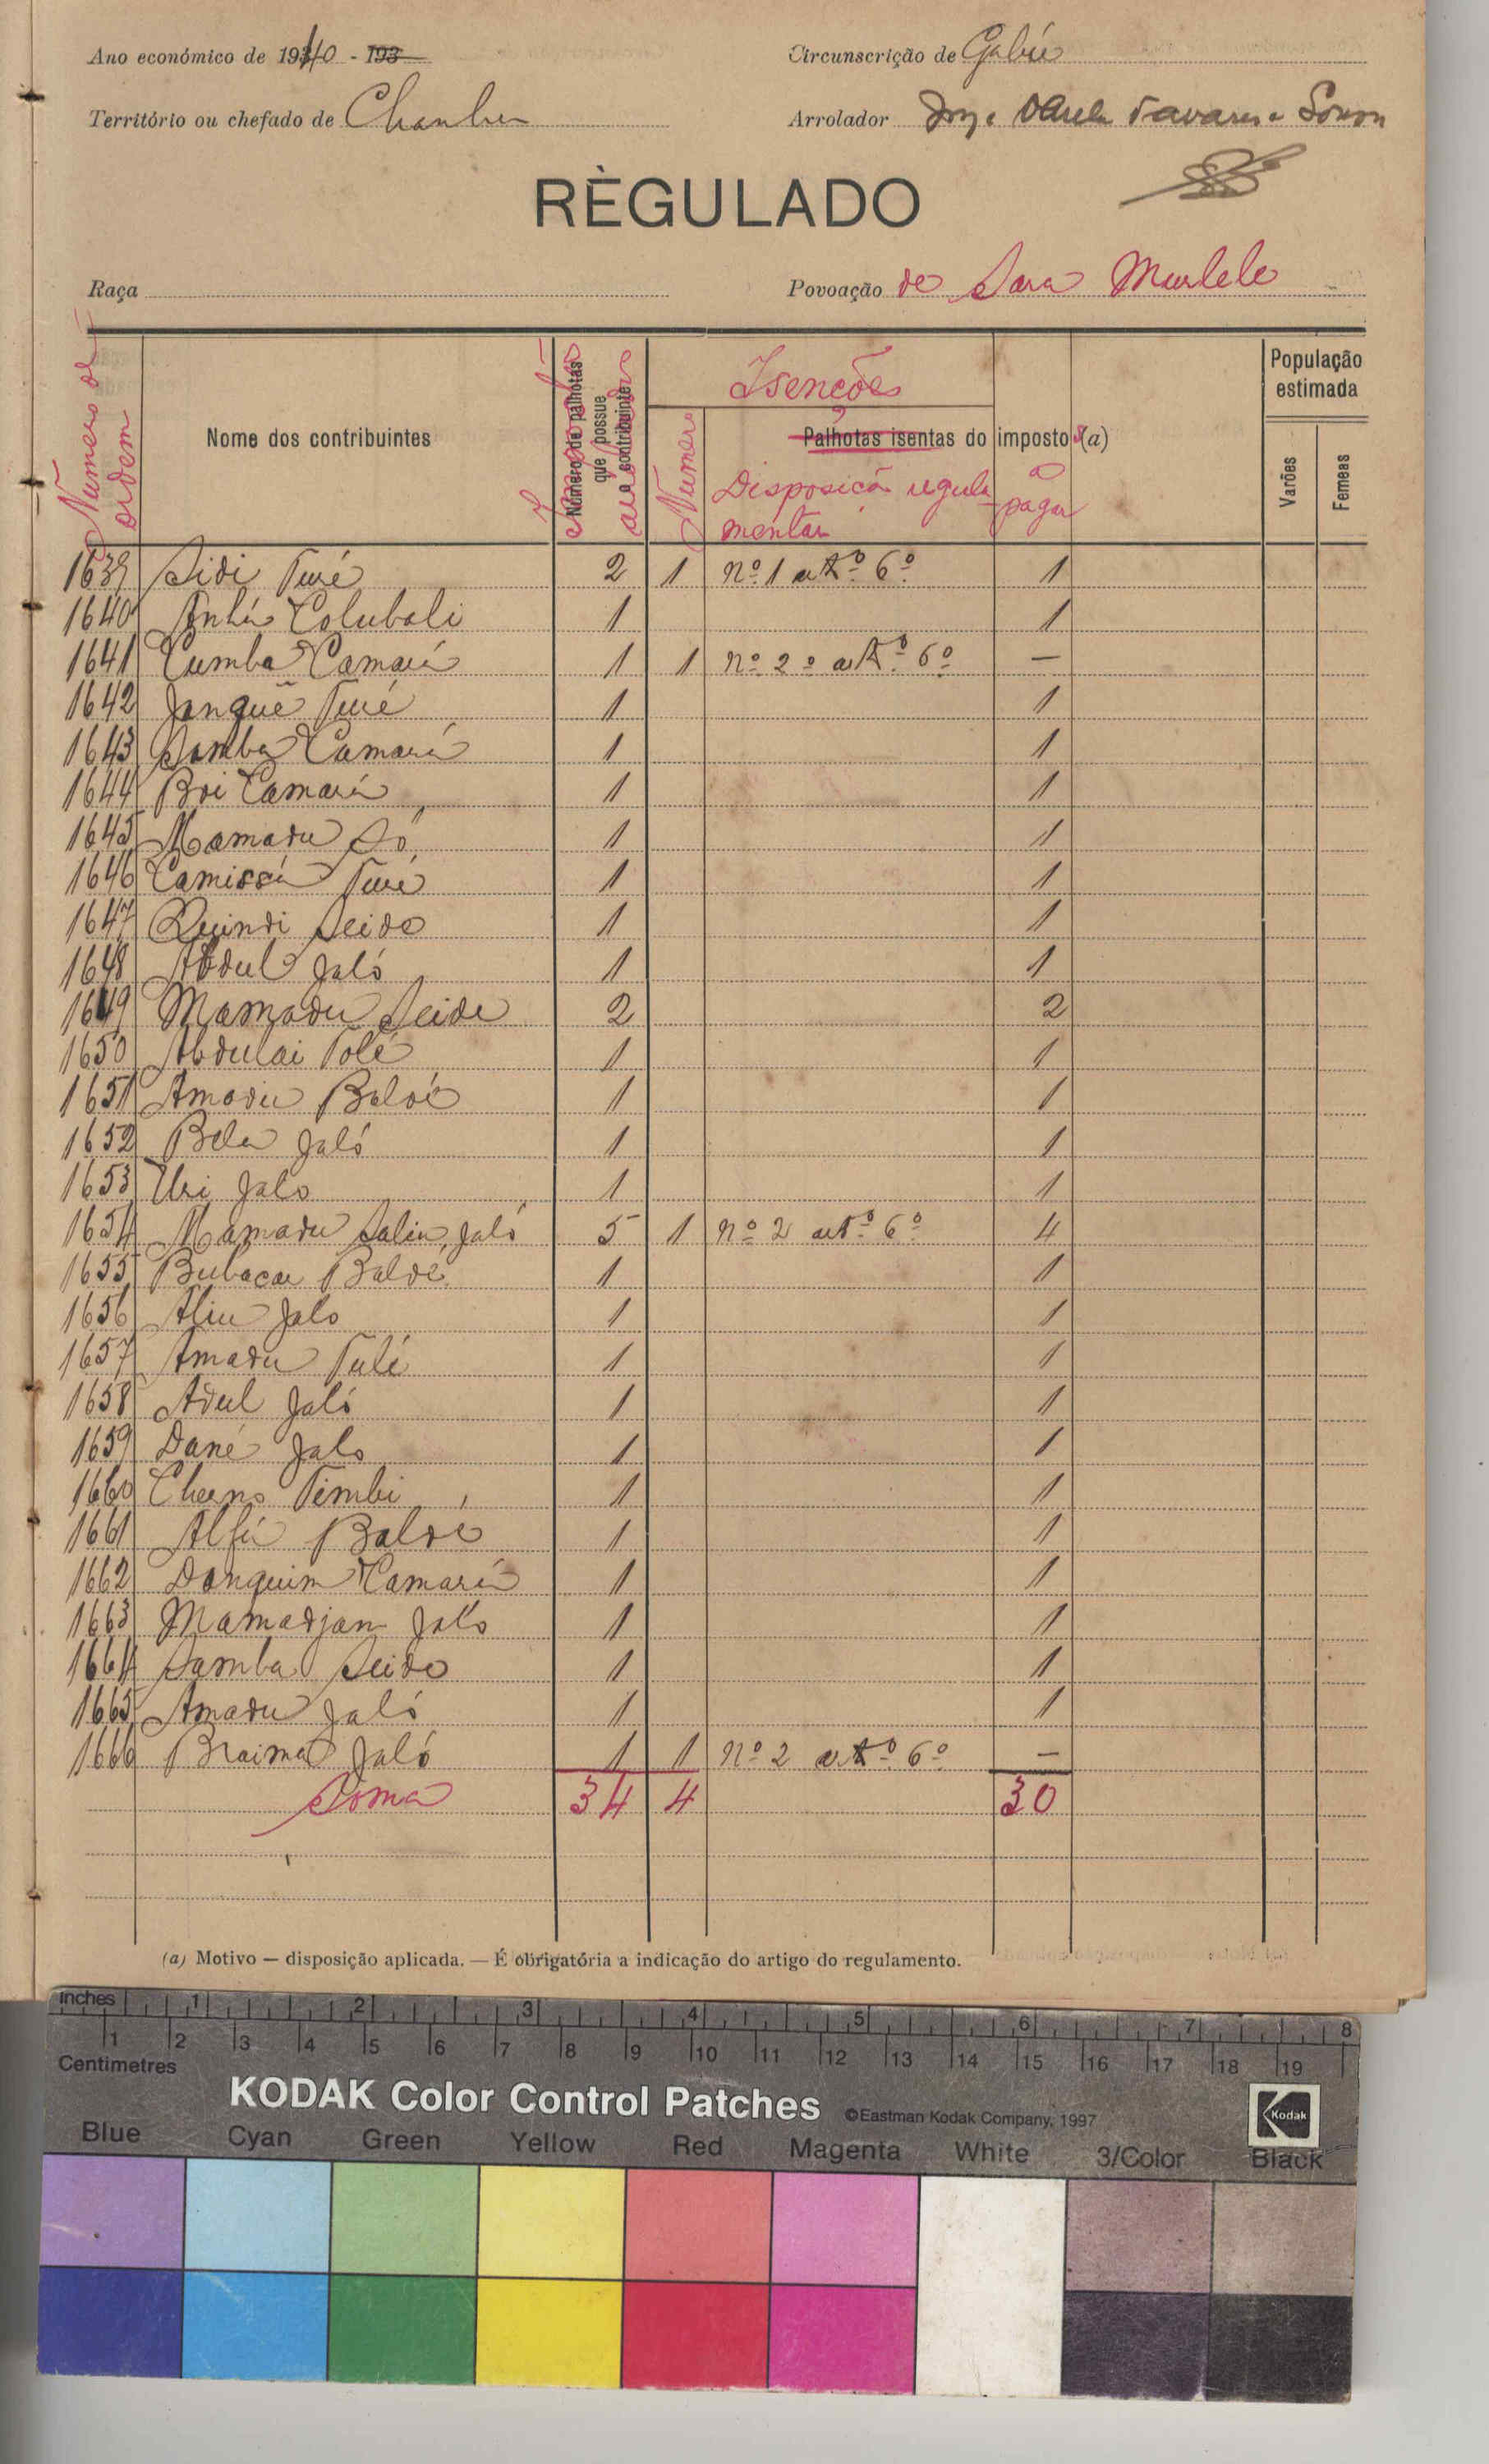 Ano económico de 1940 - 193
Circunscrição de Gabú
Território ou chefado de Chanha
Arrolador Tavares e Sousa
RÈGULADO
Raça
Povoação de Sara
Numero de ordem
Nome dos contribuintes
Número de palhotas que possue o contribuinte
Isenções
Numero
Palhotas isentas do imposto (a)
Disposição regulamentar
a pagar
População estimada
Varões
Femeas
1639 Sidi Turé 2 1 nº 1 artº 6º 1
1640 Colubali 1 1
1641 Cumba Camará 1 1 nº 2º artº 6º —
1642 Janque Turé 1 1
1643 Samba Camará 1 1
1644 Boi Camará 1 1
1645 Mamadu Só 1 1
1646 Camissá Turé 1 1
1647 Quindi Seido 1 1
1648 Abdul Jaló 1 1
1649 Mamadu Seidi 2 2
1650 Abdulai Tolé 1 1
1651 Amadu Baldé 1 1
1652 Bela Jaló 1 1
1653 Uri Jalo 1 1
1654 Mamadu Saliu Jaló 5 1 nº 2 artº 6º 4
1655 Bubacar Baldé 1 1
1656 Aliu Jalo 1 1
1657 Amadu Tulé 1 1
1658 Adul Jaló 1 1
1659 Dané Jalo 1 1
1660 Cherno Timbi 1 1
1661 Alfá Baldé 1 1
1662 Danquim Camará 1 1
1663 Mamadjan Jaló 1 1
1664 Samba Seido 1 1
1665 Amadu Jaló 1 1
1666 Braima Jaló 1 1 nº 2 artº 6º —
Soma 34 4 30
(a) Motivo — disposição aplicada. — É obrigatória a indicação do artigo do regulamento.
inches 1 2 3 4 5 6 7 8
1 2 3 4 5 6 7 8 9 10 11 12 13 14 15 16 17 18 19
Centimetres
KODAK Color Control Patches ©Eastman Kodak Company, 1997 Kodak
Blue Cyan Green Yellow Red Magenta White 3/Color Black